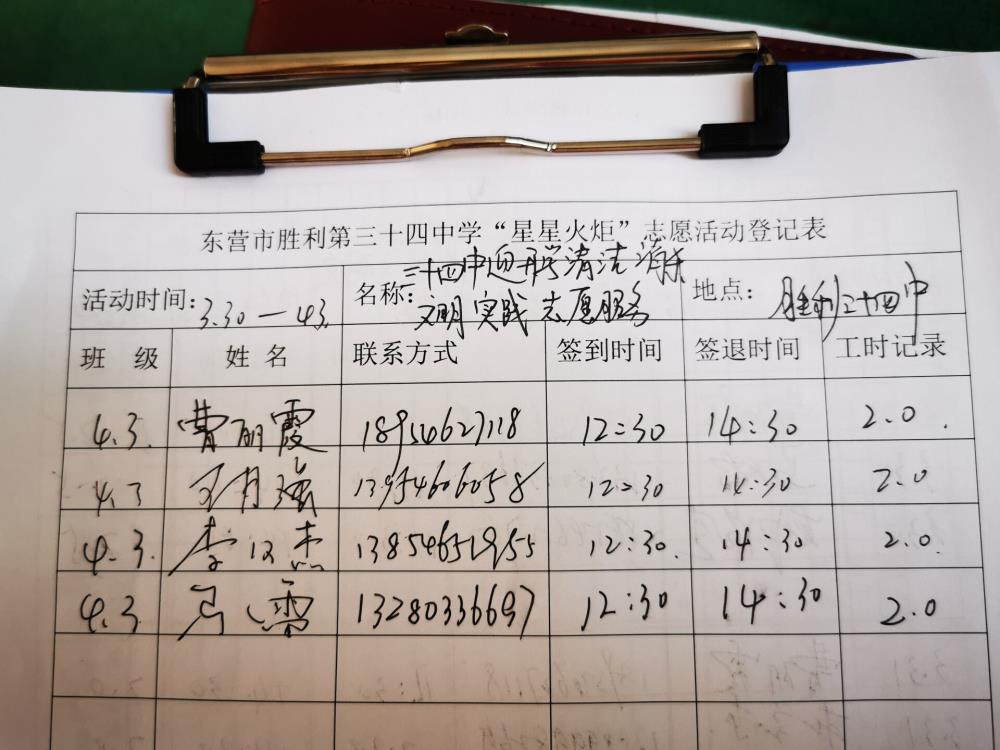 东营市胜利第三十四中学“星星火炬”志愿活动登记表
活动时间:3.30—4.3. 名称:三十四中迎开学清洁消杀 文明实践志愿服务 地点:胜利三十四中
班 级 姓 名 联系方式 签到时间 签退时间 工时记录
4.3. 曹丽霞 18954627118 12:30 14:30 2.0.
4.3 13954606058 12:30 14:30 2.0
4.3. 李 杰 13854651955 12:30. 14:30 2.0.
4.3 雷 13280336697 12:30 14:30 2.0